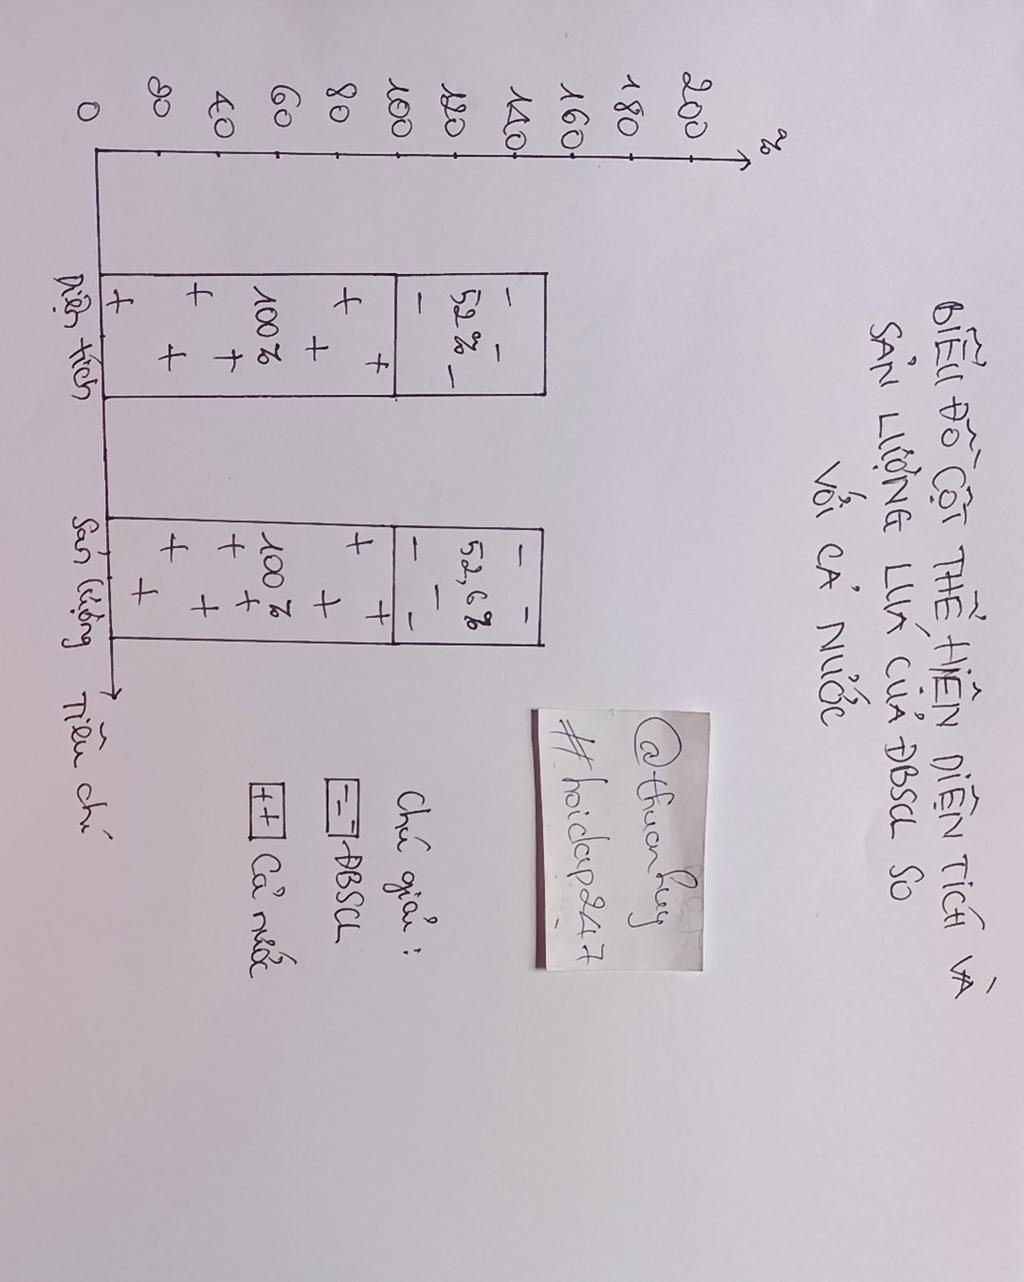 BIỂU ĐỒ CỘT THỂ HIỆN DIỆN TÍCH VÀ
SẢN LƯỢNG LÚA CỦA ĐBSCL SO
VỚI CẢ NƯỚC
%
200
180
160
140
120
100
80
60
40
20
0
52%
100%
52,6%
100%
Diện tích
Sản lượng
Tiêu chí
@thuanhuy
#hoidap247
Chú giải:
ĐBSCL
Cả nước